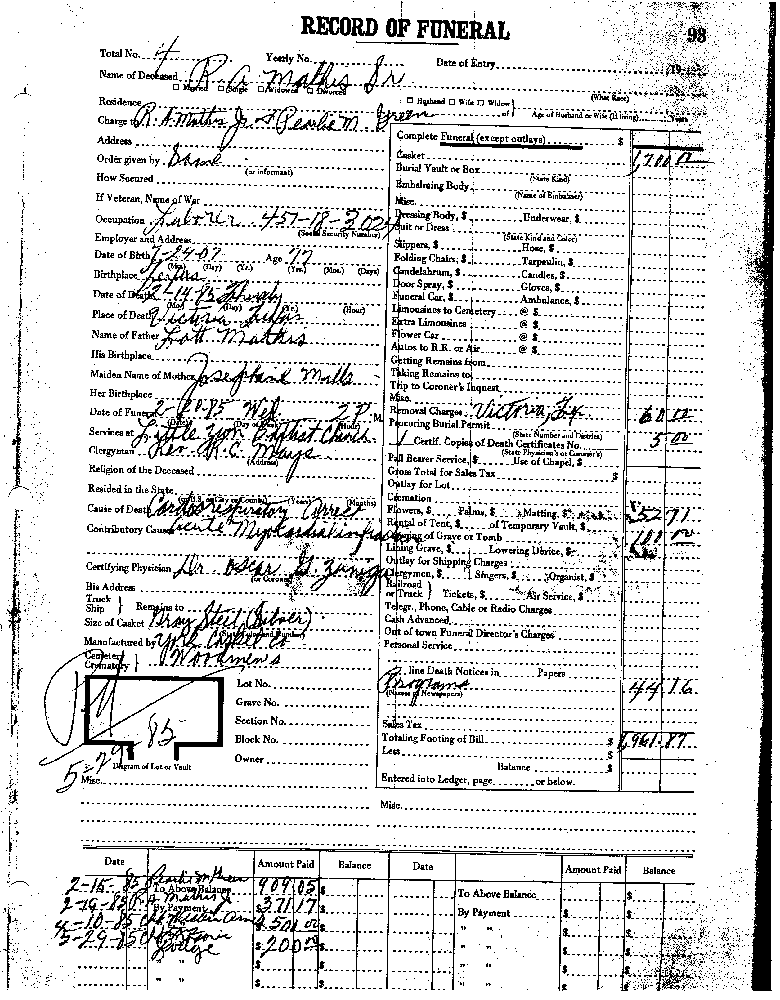 RECORD OF FUNERAL
98
Total No. 4 Yearly No. Date of Entry 19
Name of Deceased R. A. Mathis Sr
Married Single Widowed Divorced (What Race)
Residence Husband Wife Widow of Age of Husband or Wife (if living) Years
Charge R. A. Mathis Jr. & Pearlie M. Green
Address
Order given by Same (or informant)
How Secured
If Veteran, Name of War
Occupation Laborer 457-18-3024 (Social Security Number)
Employer and Address
Date of Birth 7-24-07 Age 77
(Mo.) (Day) (Yr.) (Yrs.) (Mos.) (Days)
Birthplace Texas
Date of Death 2-14-85 Thursday
(Mo.) (Day) (Yr.) (Hour)
Place of Death Victoria, Texas
Name of Father Lott Mathis
His Birthplace
Maiden Name of Mother Josephine Mills
Her Birthplace
Date of Funeral 2-20-85 Wed. 2 P.M.
(Date) (Day of Week) (Hour)
Services at Little Zion Baptist Church
Clergyman Rev. R. C. Mays
(Address)
Religion of the Deceased
Resided in the State
(or U.S., or City or County) (Years) (Months)
Cause of Death Cardiorespiratory Arrest
Contributory Cause Acute Myocardial infarction
Certifying Physician Dr. Oscar G. Zuniga
(or Coroner)
His Address
Truck Ship Remains to
Size of Casket Steel (Silver)
Manufactured by Casket Co
Cemetery Crematory Woodmen's
Lot No.
Grave No.
Section No.
Block No.
Owner
Diagram of Lot or Vault
Pd 5-29-85
Misc.
Complete Funeral (except outlays) $
Casket 1,200 00
Burial Vault or Box
(State Kind)
Embalming Body
(Name of Embalmer)
Misc.
Dressing Body, $ Underwear, $
Suit or Dress
(State Kind and Color)
Slippers, $ Hose, $
Folding Chairs, $ Tarpaulin, $
Candelabrum, $ Candles, $
Door Spray, $ Gloves, $
Funeral Car, $ Ambulance, $
Limousines to Cemetery @ $
Extra Limousines @ $
Flower Car @ $
Autos to R.R. or Air @ $
Getting Remains from
Taking Remains to
Trip to Coroner's Inquest
Misc.
Removal Charges Victoria, Tx 60 00
Procuring Burial Permit
(State Number and District)
1 Certif. Copies of Death Certificates No. 5 00
(State Physician's or Coroner's)
Pall Bearer Service, $ Use of Chapel, $
Gross Total for Sales Tax $
Outlay for Lot
Cremation
Flowers, $ Palms, $ Matting, $ 52 71
Rental of Tent, $ of Temporary Vault, $
Opening of Grave or Tomb 100 00
Lining Grave, $ Lowering Device, $
Outlay for Shipping Charges
Clergymen, $ Singers, $ Organist, $
Railroad or Truck Tickets, $ Air Service, $
Telegr., Phone, Cable or Radio Charges
Cash Advanced
Out of town Funeral Director's Charges
Personal Service
line Death Notices in Papers
Programs 44 16
(Names of Newspapers)
Sales Tax
Totaling Footing of Bill $ 1,961.87
Less $
Balance $
Entered into Ledger, page or below.
Misc.
Date Amount Paid Balance Date Amount Paid Balance
2-15-85 Pearlie M Green 909.05
To Above Balance
2-19-85 R. A. Mathis Jr 371 17
By Payment
4-10-85 301 00
5-29-85 Lodge 200 00
To Above Balance
By Payment